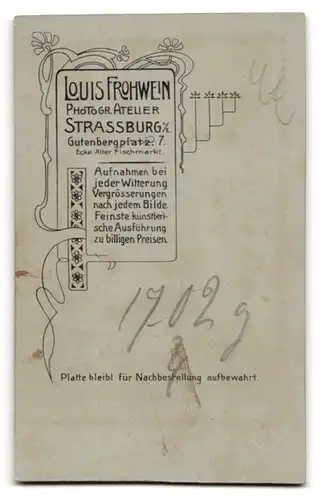 LOUIS FROHWEIN
PHOTOGR. ATELIER
STRASSBURG i/E.
Gutenbergplatz: 7.
Ecke Alter Fischmarkt.
Aufnahmen bei
jeder Witterung
Vergrösserungen
nach jedem Bilde.
Feinste künstleri-
sche Ausführung
zu billigen Preisen.
1702 g
A
Platte bleibt für Nachbestellung aufbewahrt.